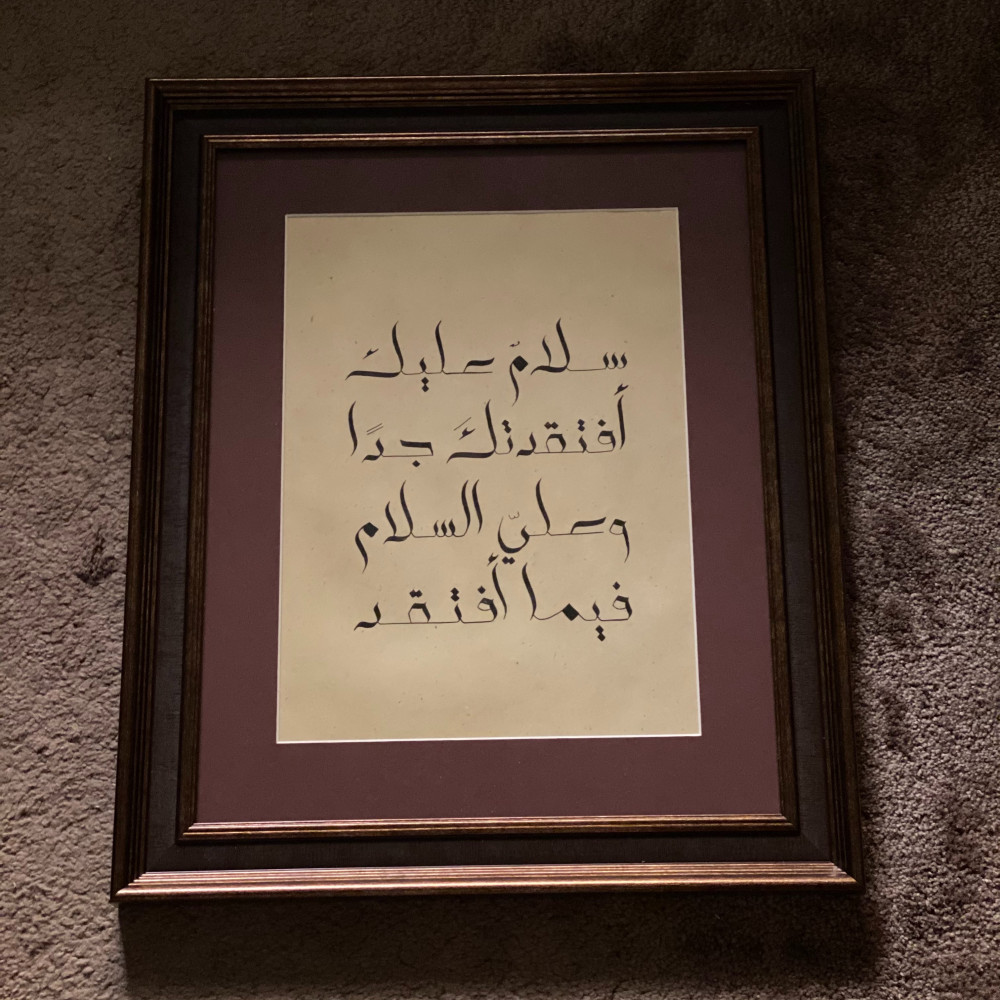 سلامٌ عليك
أفتقدتكَ جدًا
وعليّ السلام
فيما أفتقد